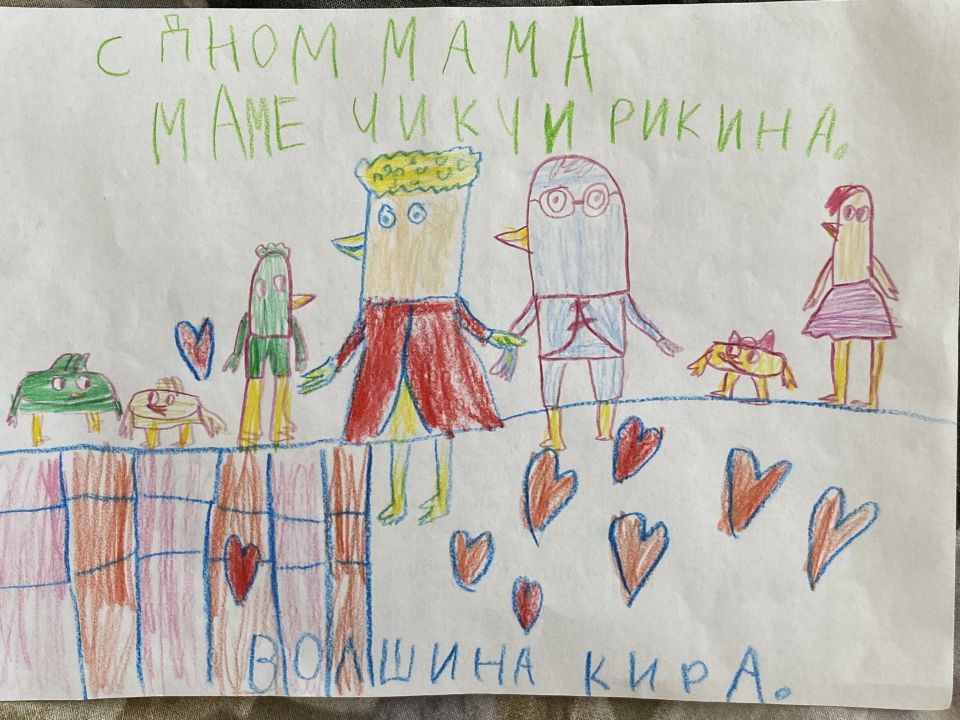 С ДНОМ МАМА
МАМЕ ЧИКЧИРИКИНА.
ВОЛШИНА КИРА.